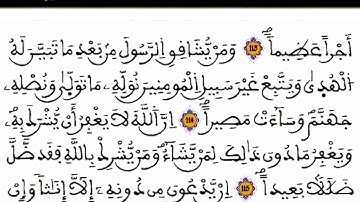 أَجْراً عَظِيماًۖ 113 وَمَنْ يُّشَاقِقِ اِ۬لرَّسُولَ مِنۢ بَعْدِ مَا تَبَيَّنَ لَهُ
اُ۬لْهُد۪ىٰ وَيَتَّبِعْ غَيْرَ سَبِيلِ اِ۬لْمُومِنِينَ نُوَلِّهِۦ مَا تَوَلّ۪ىٰ وَنُصْلِهِۦ
جَهَنَّمَ وَسَآءَتْ مَصِيراًۖ 114 إِنَّ اَ۬للَّهَ لَا يَغْفِرُ أَنْ يُّشْرَكَ بِهِۦ
وَيَغْفِرُ مَا دُونَ ذَٰلِكَ لِمَنْ يَّشَآءُۖ وَمَنْ يُّشْرِكْ بِاللَّهِ فَقَد ضَّلَّ
ضَلَٰلاَۢ بَعِيداًۖ 115 إِنْ يَّدْعُونَ مِن دُونِهِۦٓ إِلَّآ إِنَٰثاً وَإِنْ